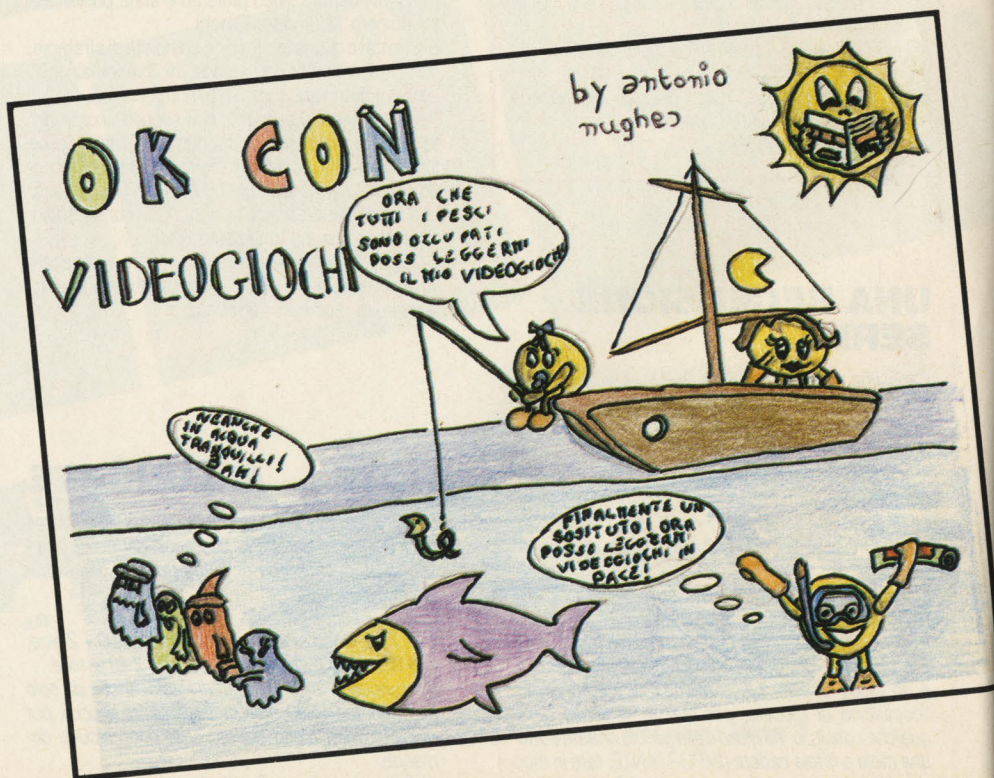 OK CON
VIDEOGIOCHI
by antonio
nughes
ORA CHE
TUTTI I PESCI
SONO OCCUPATI
POSS LEGGERMI
IL MIO VIDEOGIOCHI
NEANCHE
IN ACQUA
TRANQUILLI!
BAH!
FINALMENTE UN
SOSITUTO! ORA
POSSO LEGGERMI
VIDEOGIOCHI IN
PACE!